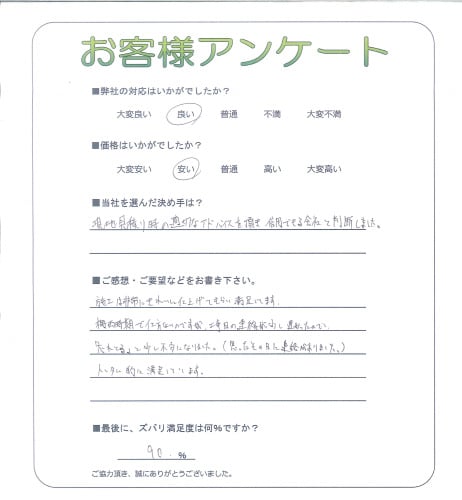 お客様アンケート
■弊社の対応はいかがでしたか？
大変良い 良い 普通 不満 大変不満
■価格はいかがでしたか？
大変安い 安い 普通 高い 大変高い
■当社を選んだ決め手は？
現地見積り時の適切なアドバイスを頂き 信用できる会社と判断しました。
■ご感想・ご要望などをお書き下さい。
施工は非常にきれいに仕上げてもらい満足してます。
梅雨時期で仕方ないのですが、2年目の連絡が少し遅れたので、
忘れてる？と少し不安になりました。（思ったその日に連絡が来ました。）
トータル的に満足しています。
■最後に、ズバリ満足度は何％ですか？
90.％
ご協力頂き、誠にありがとうございました。